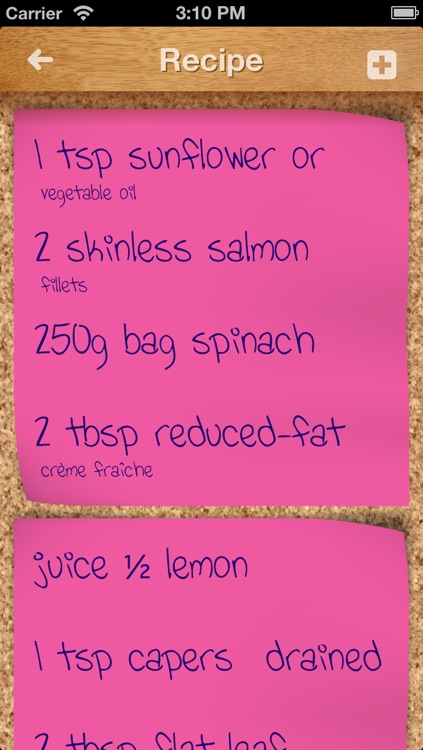 Carrier 3:10 PM
Recipe
1 tsp sunflower or
vegetable oil
2 skinless salmon
fillets
250g bag spinach
2 tbsp reduced-fat
crème fraîche
juice ½ lemon
1 tsp capers drained
2 tbsp flat-leaf